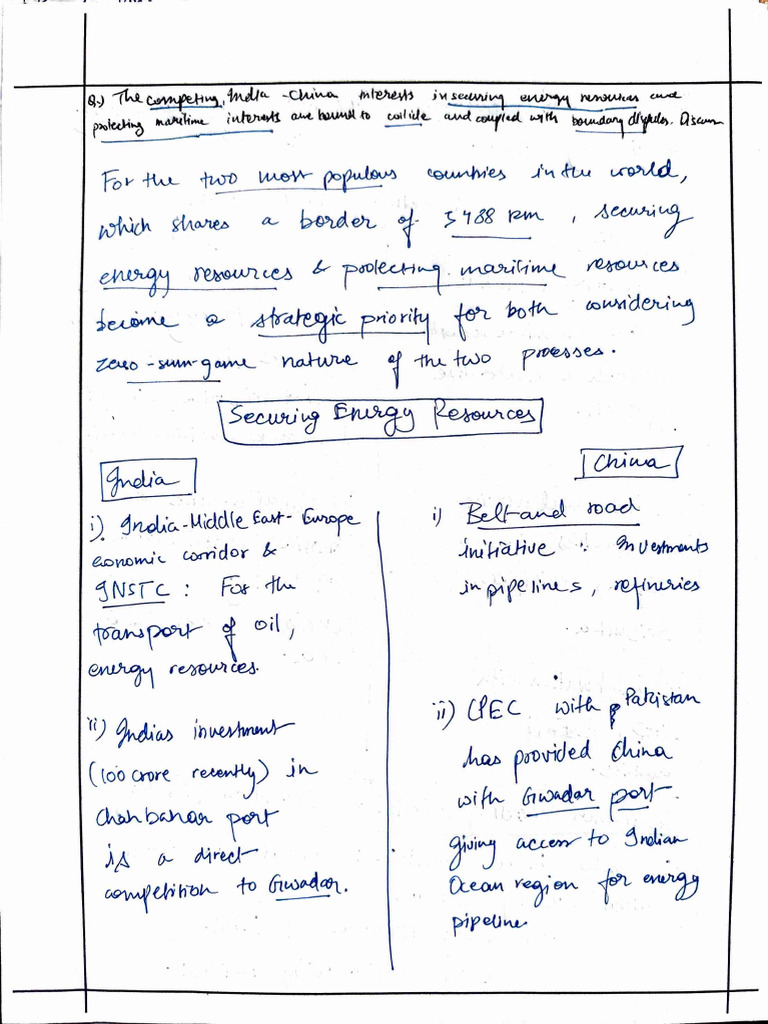 Q.) The competing, India - China interests in securing energy resources and
protecting maritime interests are bound to collide and coupled with boundary disputes. Discuss
For the two most populous countries in the world,
which shares a border of 3488 km, securing
energy resources & protecting maritime resources
become a strategic priority for both considering
zero-sum-game nature of the two processes.
Securing Energy Resources
India
i). India-Middle East-Europe
economic corridor &
INSTC : For the
transport of oil,
energy resources.
ii) Indias investment
(100 crore recently) in
Chahbahar port
is a direct
competition to Gwadar.
China
i) Belt and road
initiative : Investments
in pipelines, refineries
ii) CPEC with Pakistan
has provided China
with Gwadar port
giving access to Indian
Ocean region for energy
pipeline.